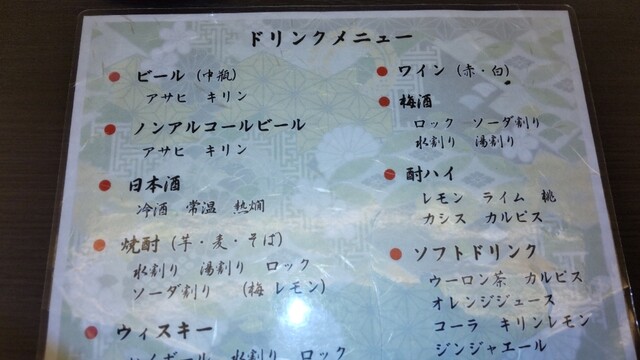 ドリンクメニュー
ビール (中瓶)
アサヒ キリン
ノンアルコールビール
アサヒ キリン
日本酒
冷酒 常温 熱燗
焼酎 (芋・麦・そば)
水割り 湯割り ロック
ソーダ割り (梅 レモン)
ウィスキー
ハイボール 水割り ロック
ワイン (赤・白)
梅酒
ロック ソーダ割り
水割り 湯割り
酎ハイ
レモン ライム 桃
カシス カルピス
ソフトドリンク
ウーロン茶 カルピス
オレンジジュース
コーラ キリンレモン
ジンジャエール